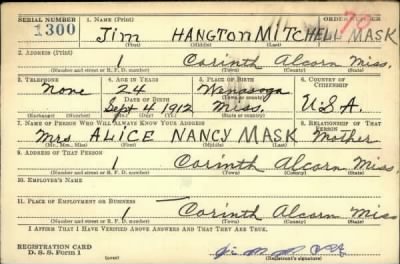 SERIAL NUMBER 1. NAME (Print) ORDER NUMBER
1300 Jim HANGTON MITCHELL MASK
(First) (Middle) (Last)
2. ADDRESS (Print)
1 Corinth Alcorn Miss.
(Number and street or R. F. D. number) (Town) (County) (State)
3. TELEPHONE 4. AGE IN YEARS 5. PLACE OF BIRTH 6. COUNTRY OF CITIZENSHIP
None 24 Wenasoga
DATE OF BIRTH (Town or county)
Sept 4 1912 Miss. U.S.A.
(Exchange) (Number) (Mo.) (Day) (Yr.) (State or country)
7. NAME OF PERSON WHO WILL ALWAYS KNOW YOUR ADDRESS 8. RELATIONSHIP OF THAT PERSON
Mrs ALICE NANCY MASK Mother
(Mr., Mrs., Miss) (First) (Middle) (Last)
9. ADDRESS OF THAT PERSON
1 Corinth Alcorn Miss.
(Number and street or R. F. D. number) (Town) (County) (State)
10. EMPLOYER'S NAME
11. PLACE OF EMPLOYMENT OR BUSINESS
1 Corinth Alcorn Miss
(Number and street or R. F. D. number) (Town) (County) (State)
I AFFIRM THAT I HAVE VERIFIED ABOVE ANSWERS AND THAT THEY ARE TRUE.
REGISTRATION CARD
D. S. S. Form 1 (Registrant's signature)